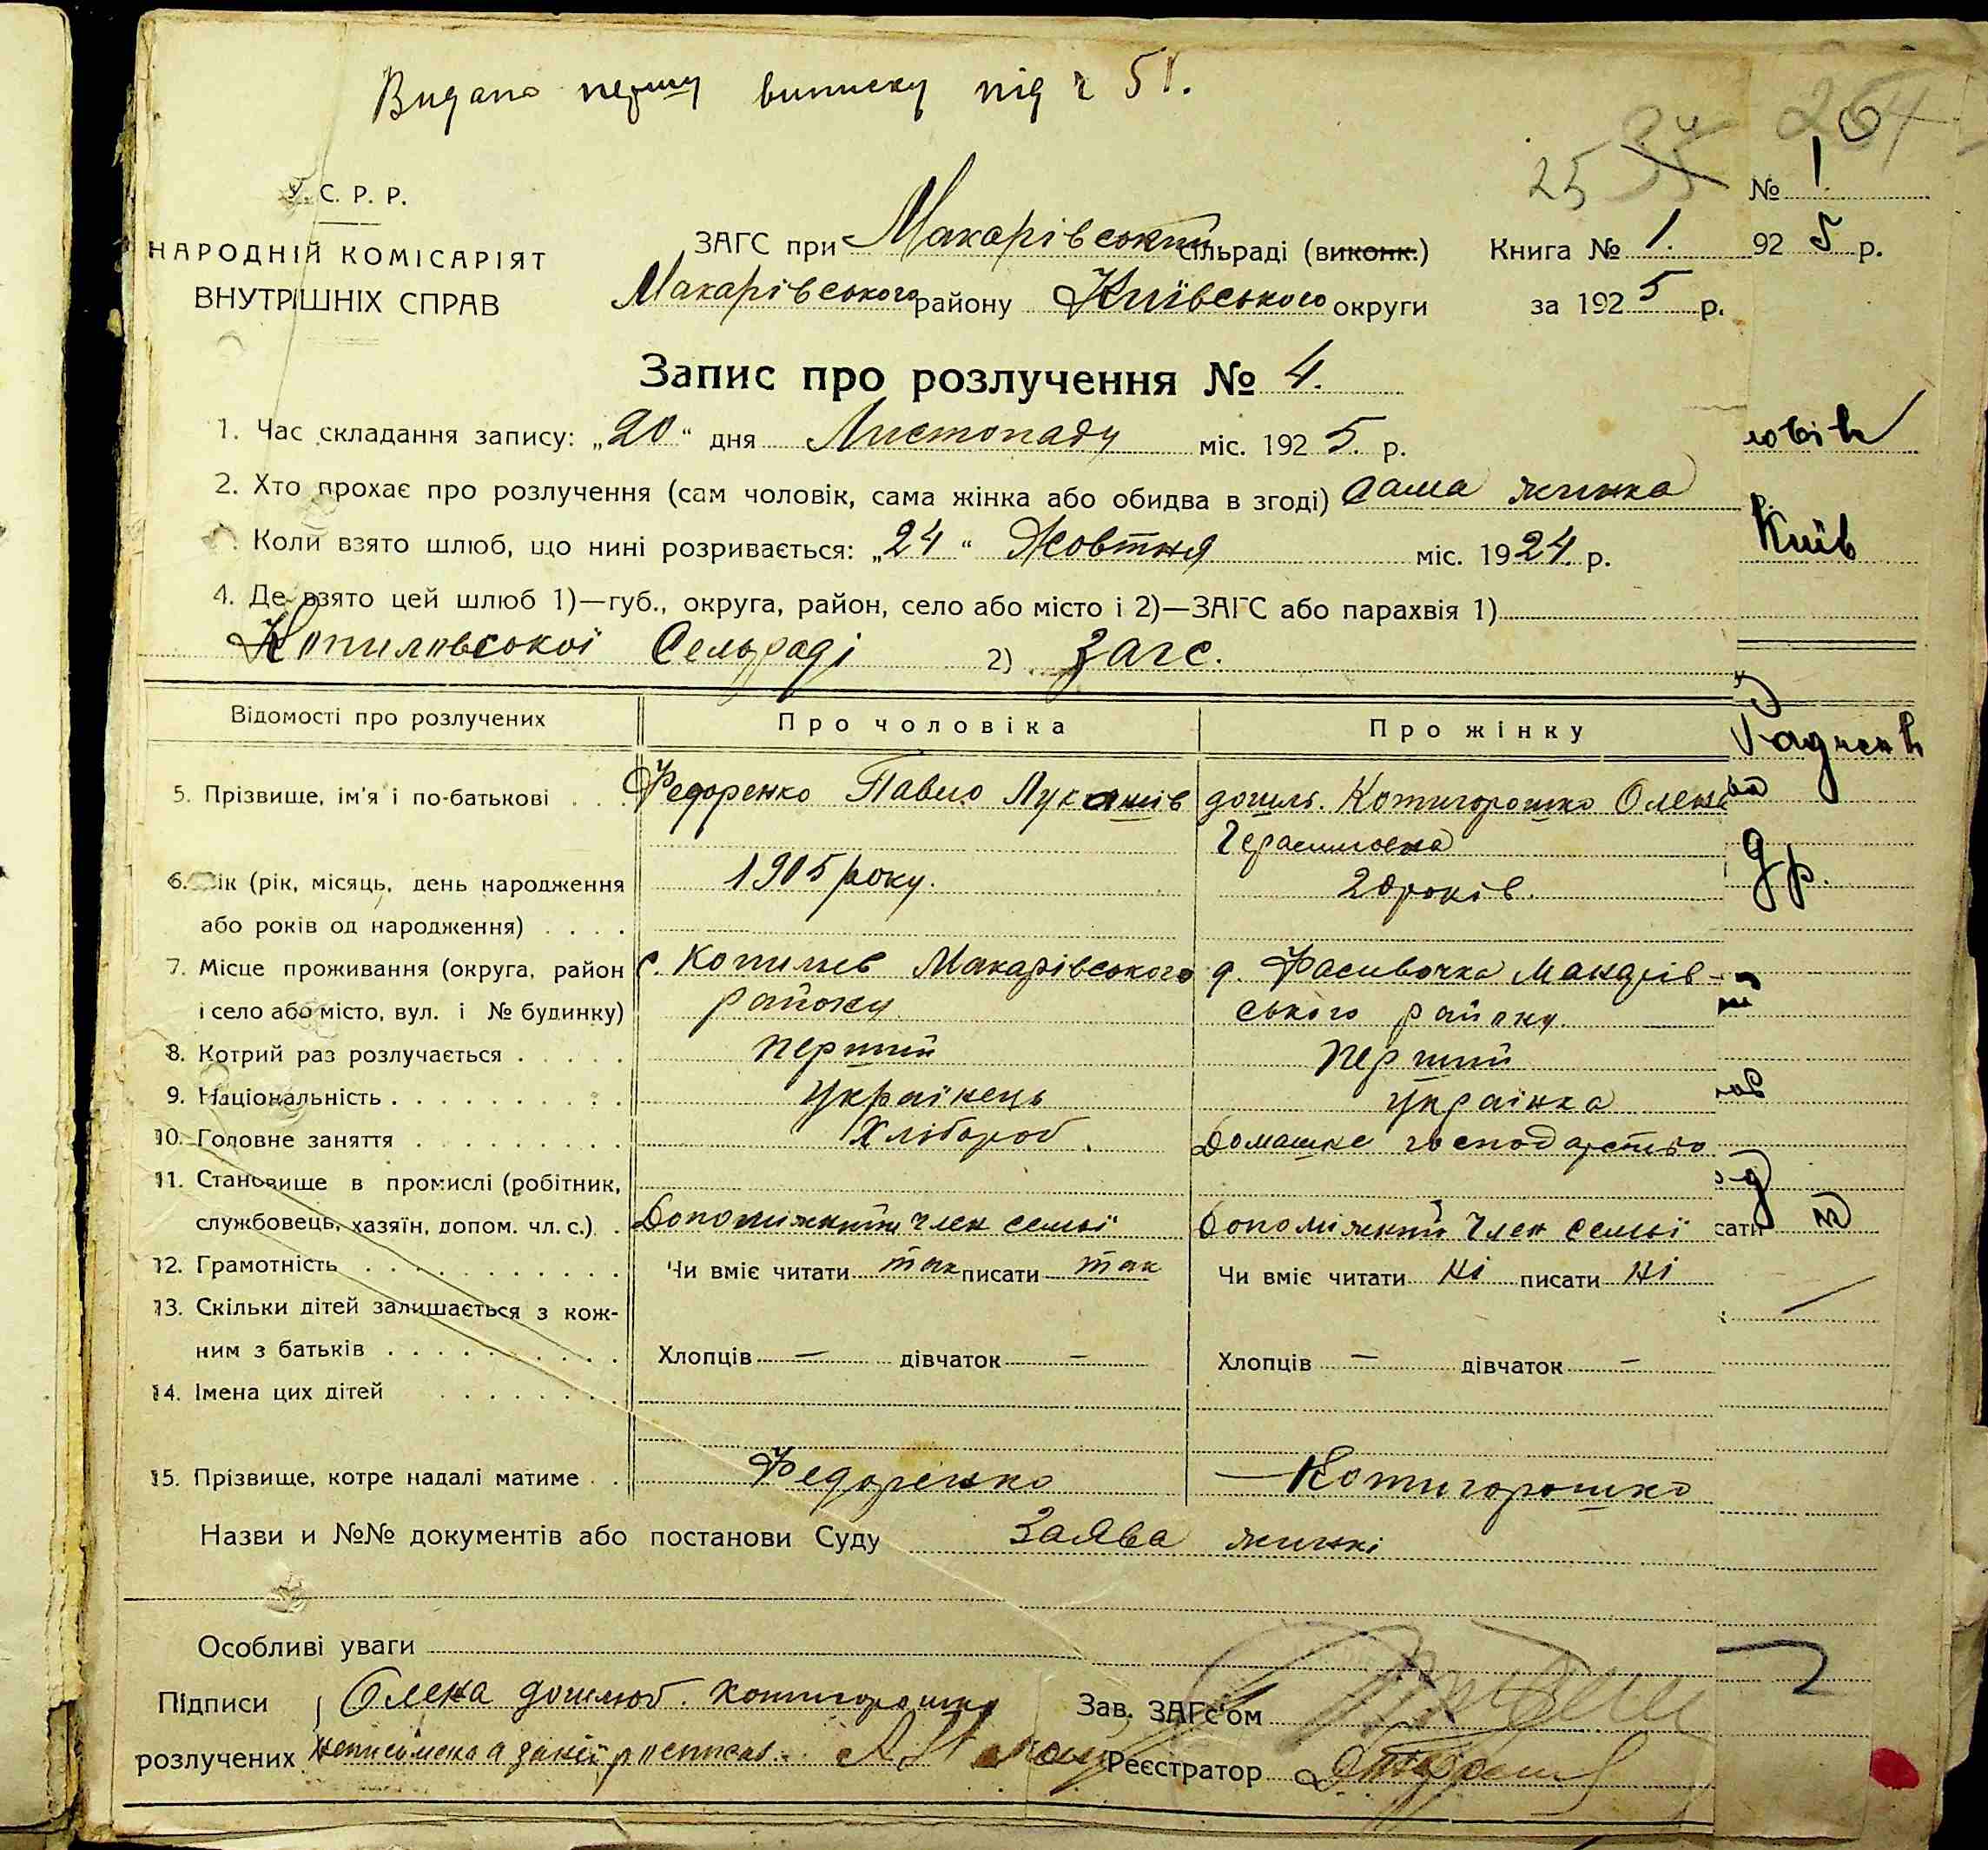 Видано першу виписку під ч 51.
264
25 35
У. С. Р. Р.
НАРОДНІЙ КОМІСАРІЯТ
ВНУТРІШНІХ СПРАВ
ЗАГС при Макарівський сільраді (виконк.) Книга № 1.
Макарівського району Київського округи за 1925 р.
№ 1.
92 5 р.
Запис про розлучення № 4.
1. Час складання запису: „20“ дня Листопаду міс. 1925. р.
2. Хто прохає про розлучення (сам чоловік, сама жінка або обидва в згоді) Сама жинка
Коли взято шлюб, що нині розривається: „24“ Жовтня міс. 1924. р.
Київ
4. Де взято цей шлюб 1)—губ., округа, район, село або місто і 2)—ЗАГС або парахвія 1)
Копиловської Сельраді 2) Загс.
Відомості про розлучених Про чоловіка Про жінку
5. Прізвище, ім'я і по-батькові Федоренко Павло Лукашів дошль. Котигорошко Олена
Герасимовна
6. Вік (рік, місяць, день народження 1905 року. 20 років.
або років од народження)
7. Місце проживання (округа, район с. Копилів Макарівського д. Фасивочка Макарів-
і село або місто, вул. і № будинку) району ського району.
8. Котрий раз розлучається перший перший
9. Національність Українець Українка
10. Головне заняття Хлібороб. Домашнє господарство
11. Становище в промислі (робітник,
службовець, хазяїн, допом. чл. с.) Допоміжний член семьї Допоміжний член семьї
12. Грамотність Чи вміє читати так писати так Чи вміє читати ні писати ні
13. Скільки дітей залишається з кож-
ним з батьків Хлопців — дівчаток — Хлопців — дівчаток —
14. Імена цих дітей
15. Прізвище, котре надалі матиме Федоренко Котигорошко
Назви и №№ документів або постанови Суду Заява жинкі
Особливі уваги
Підписи Олена дошлюб. Котигорошко Зав. ЗАГс'ом
розлучених неписьмена а за неї росписав Реєстратор